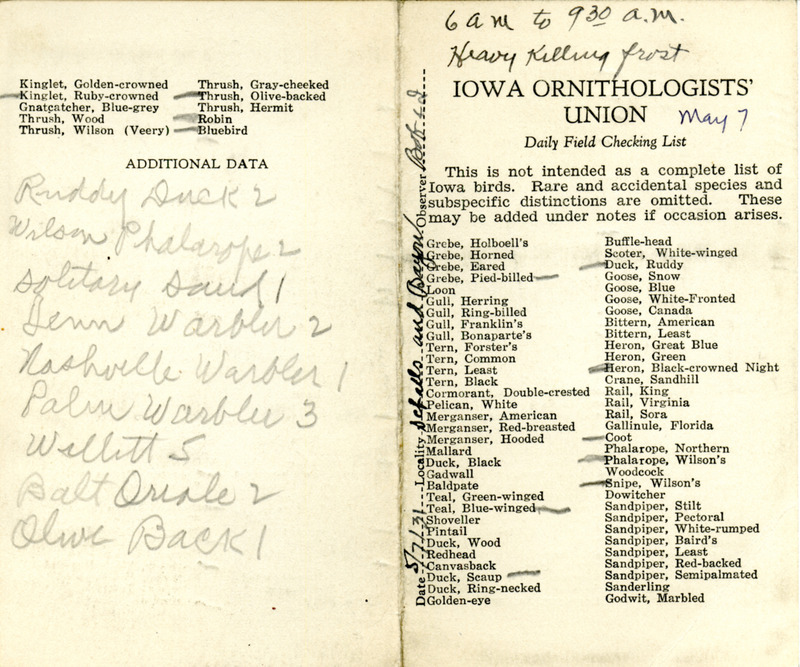 Kinglet, Golden-crowned
Kinglet, Ruby-crowned
Gnatcatcher, Blue-grey
Thrush, Wood
Thrush, Wilson (Veery)
Thrush, Gray-cheeked
Thrush, Olive-backed
Thrush, Hermit
Robin
Bluebird
ADDITIONAL DATA
Ruddy Duck 2
Wilson Phalarope 2
Solitary Sand 1
Tenn Warbler 2
Nashville Warbler 1
Palm Warbler 3
Willett 5
Balt Oriole 2
Olive Back 1
6 am to 9 30 a.m.
Heavy Killing frost
IOWA ORNITHOLOGISTS'
UNION
May 7
Daily Field Checking List
This is not intended as a complete list of
Iowa birds. Rare and accidental species and
subspecific distinctions are omitted. These
may be added under notes if occasion arises.
Date 5/7/31 Locality and Observer
Grebe, Holboell's
Grebe, Horned
Grebe, Eared
Grebe, Pied-billed
Loon
Gull, Herring
Gull, Ring-billed
Gull, Franklin's
Gull, Bonaparte's
Tern, Forster's
Tern, Common
Tern, Least
Tern, Black
Cormorant, Double-crested
Pelican, White
Merganser, American
Merganser, Red-breasted
Merganser, Hooded
Mallard
Duck, Black
Gadwall
Baldpate
Teal, Green-winged
Teal, Blue-winged
Shoveller
Pintail
Duck, Wood
Redhead
Canvasback
Duck, Scaup
Duck, Ring-necked
Golden-eye
Buffle-head
Scoter, White-winged
Duck, Ruddy
Goose, Snow
Goose, Blue
Goose, White-Fronted
Goose, Canada
Bittern, American
Bittern, Least
Heron, Great Blue
Heron, Green
Heron, Black-crowned Night
Crane, Sandhill
Rail, King
Rail, Virginia
Rail, Sora
Gallinule, Florida
Coot
Phalarope, Northern
Phalarope, Wilson's
Woodcock
Snipe, Wilson's
Dowitcher
Sandpiper, Stilt
Sandpiper, Pectoral
Sandpiper, White-rumped
Sandpiper, Baird's
Sandpiper, Least
Sandpiper, Red-backed
Sandpiper, Semipalmated
Sanderling
Godwit, Marbled